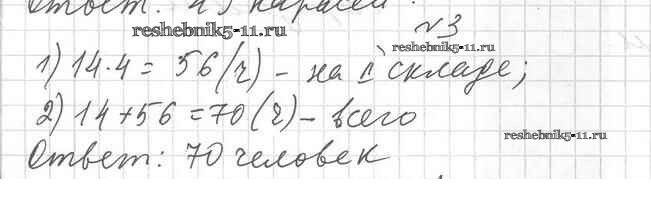 Ответ: 45 карасей.
reshebnik5-11.ru
№3
reshebnik5-11.ru
1) 14·4 = 56 (ч) – на II складе;
2) 14+56 =70 (ч) – всего
reshebnik5-11.ru
Ответ: 70 человек